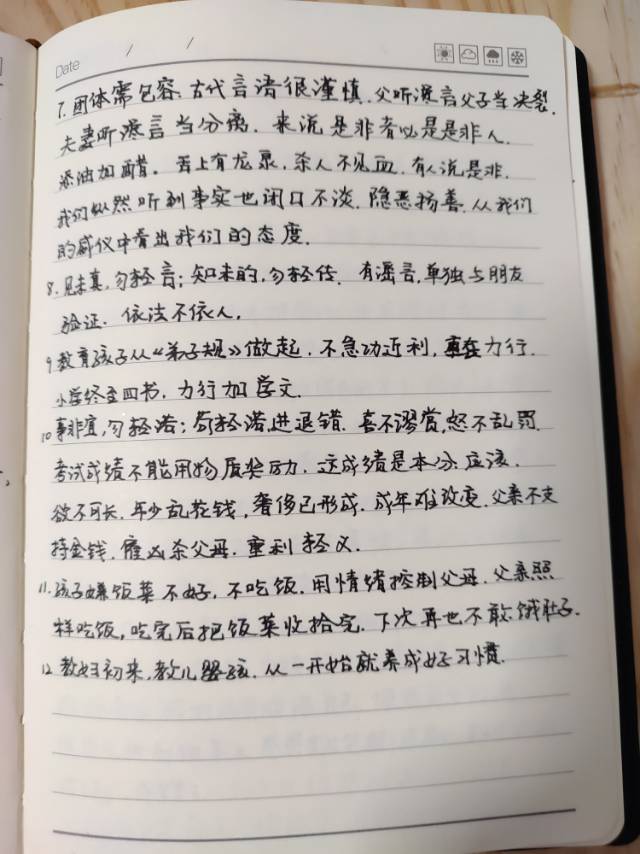 Date / /
7. 团体需包容、古代言语很谨慎. 父听谗言父子当决裂.
夫妻听谗言当分离. 来说是非者必是是非人.
添油加醋. 舌上有龙泉, 杀人不见血. 有人说是非.
我们纵然听到事实也闭口不谈. 隐恶扬善. 从我们
的威仪中看出我们的态度.
8. 见未真, 勿轻言; 知未的, 勿轻传. 有谣言, 单独与朋友
验证. 依法不依人.
9 教育孩子从《弟子规》做起, 不急功近利, 重在力行.
小学终至四书, 力行加学文.
10 事非宜, 勿轻诺; 苟轻诺, 进退错. 喜不谬赏, 怒不乱罚
考试成绩不能用物质奖励. 这成绩是本分应该.
欲不可长. 年少乱花钱, 奢侈已形成. 成年难改变. 父亲不支
持金钱. 雇凶杀父母. 重利轻义.
11. 孩子嫌饭菜不好, 不吃饭. 用情绪控制父母. 父亲照
样吃饭, 吃完后把饭菜收拾完. 下次再也不敢饿肚子.
12 教妇初来, 教儿婴孩. 从一开始就养成好习惯.